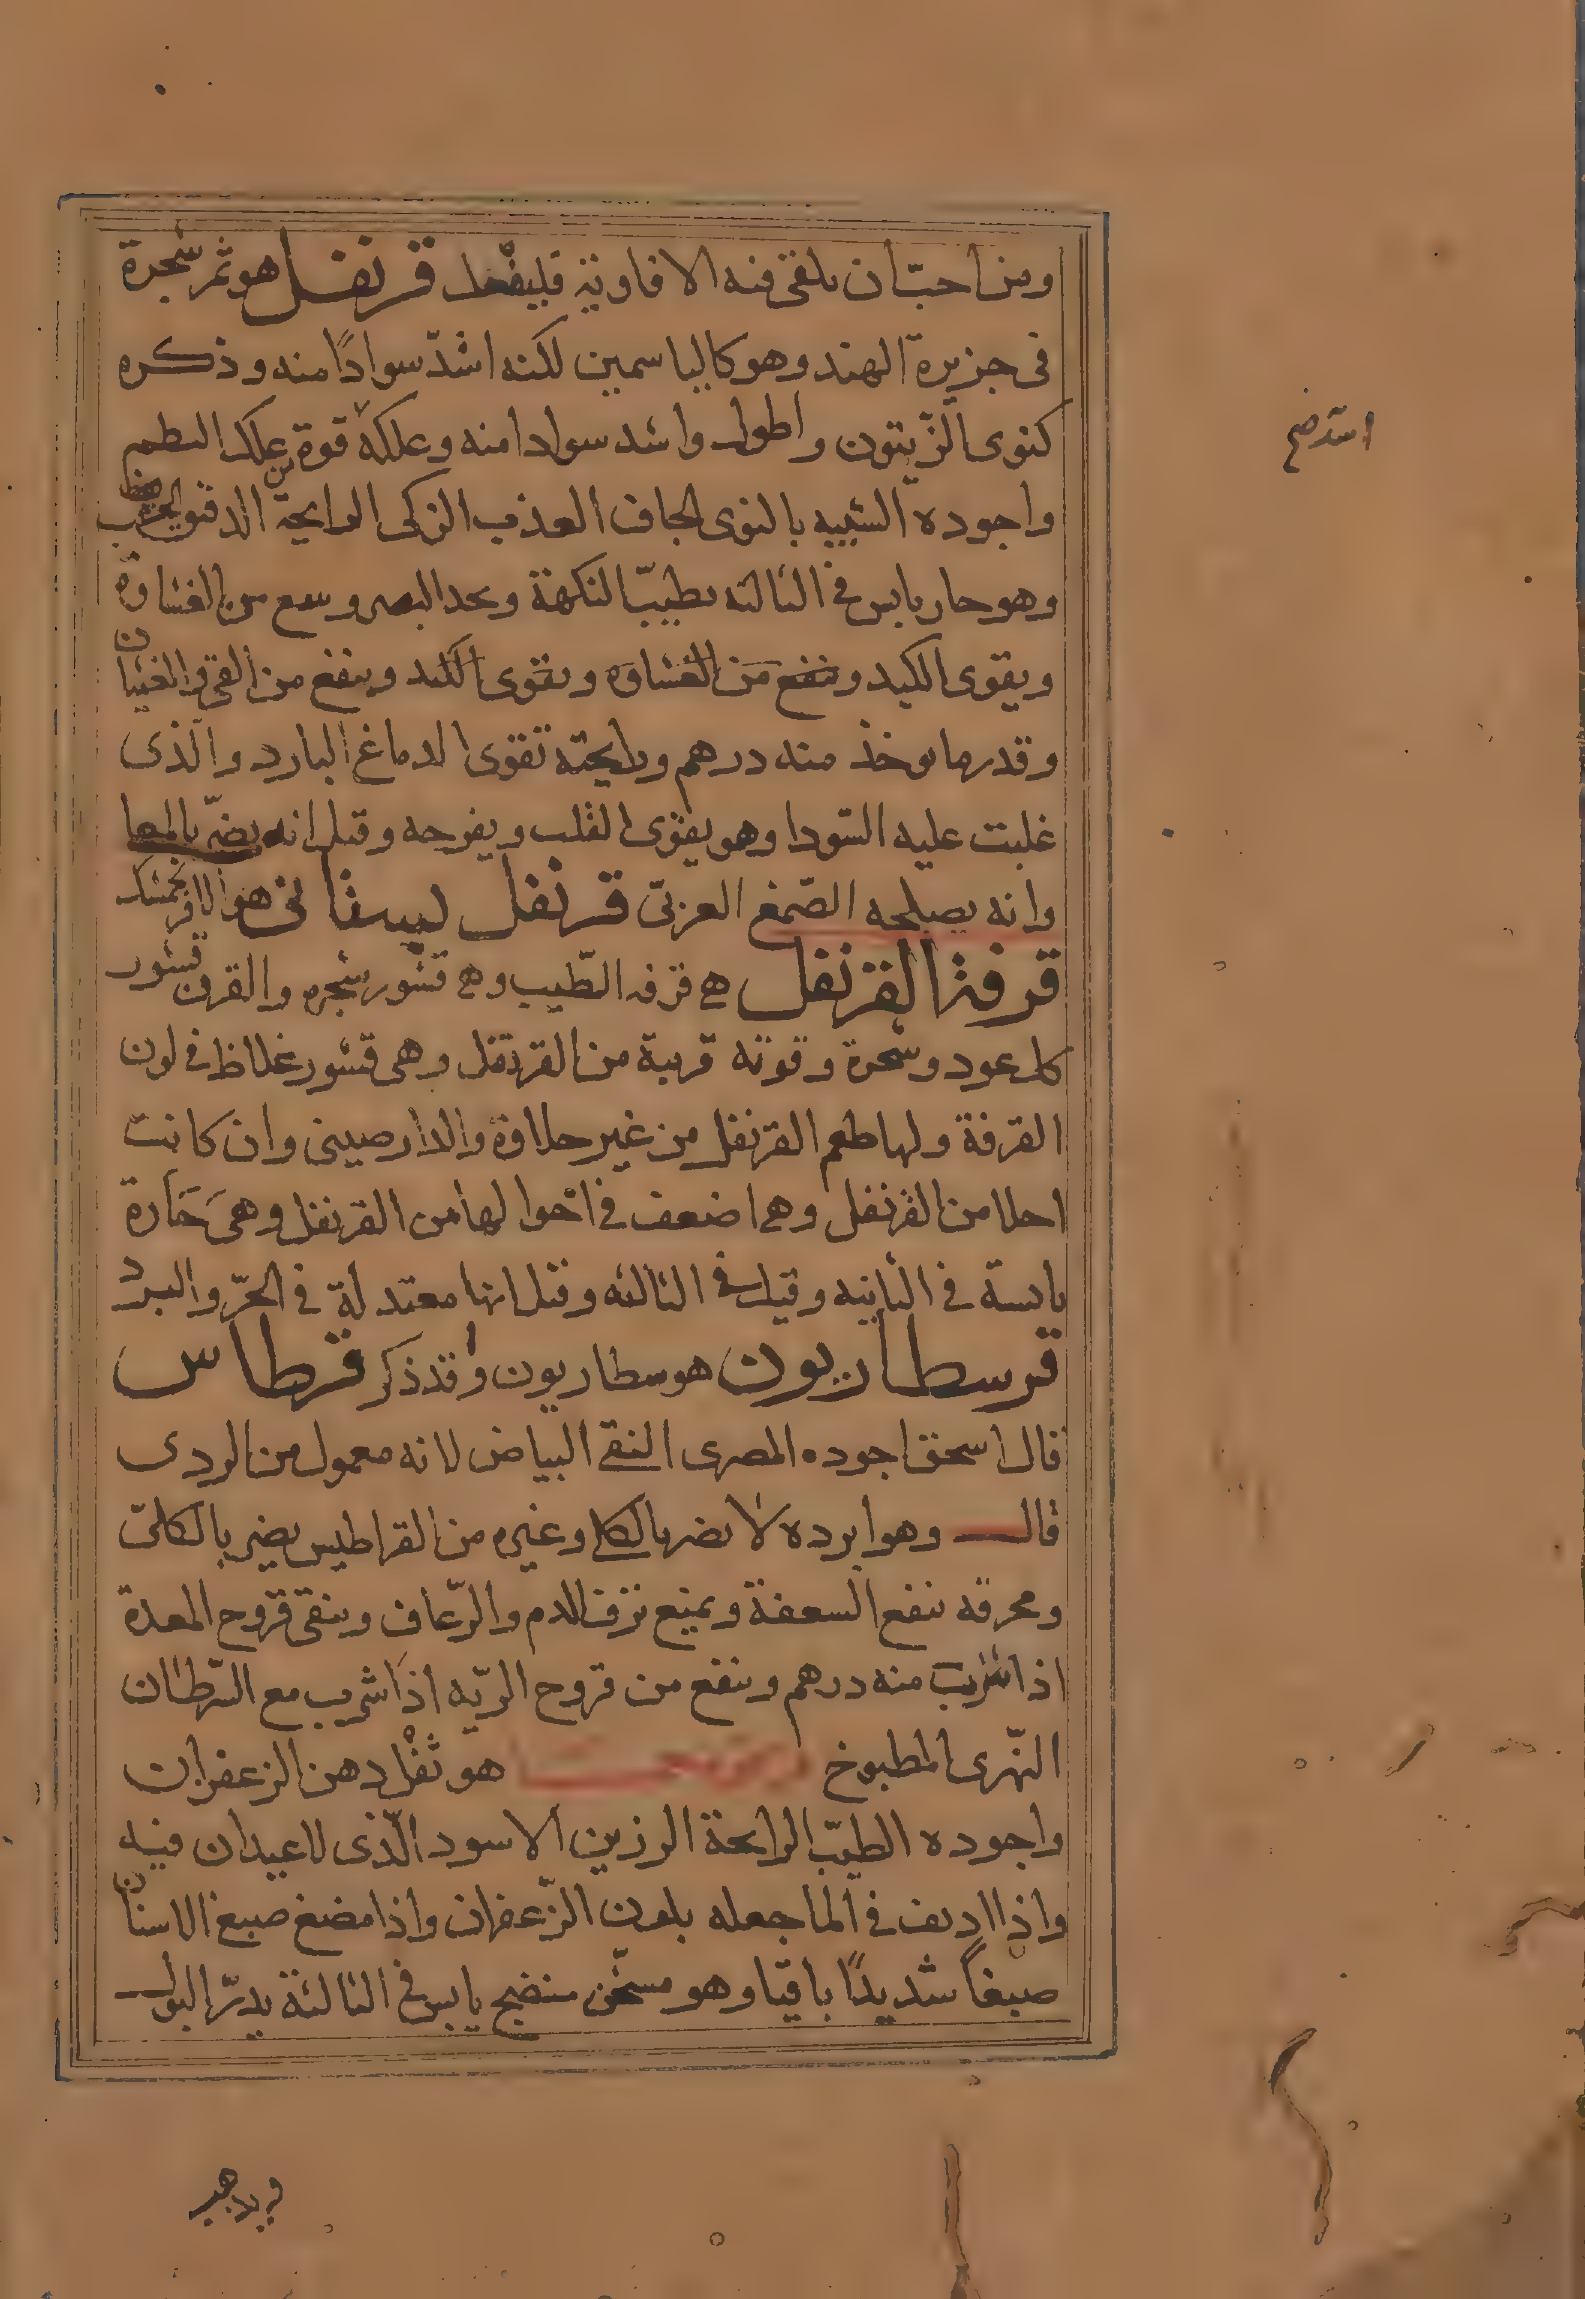 ومن احبّ ان يلقى فيه الافاويه فليفعل قرنفل هو ثمر شجرة
فى جزيرة الهند وهو كالياسمين لكنه اشدّ سوادًا منه وذكره
كنوى الزّيتون واطول واشد سوادا منه وعلكه قوة من علك البطم
واجوده الشبيه بالنوى الجاف العذب الزكى الرايحة
وهو حار يابس فى الثالثه يطيّب النكهة ويحد البصر وينفع من الغشاوة
ويقوى الكبد وينفع من الغشاوه ويقوى الكبد وينفع من القى والغثيان
وقدر ما يوخذ منه درهم ورايحته تقوى الدماغ البارد والذى
غلبت عليه السّودا وهو يقوى القلب ويفرحه وقيل انه يضرّ بالمعا
وانه يصلحه الصّمغ العربىّ قرنفل بستانى هو الافرنجمشك
قرفة القرنفل هى قرفه الطّيب وهى قشور شجره والقرف قشور
كل عود وشجرة وقوته قريبة من القرنفل وهى قشور غلاظ فى لون
القرفة ولها طعم القرنفل من غير حلاوة والدارصينى وان كانت
احلا من القرنفل وهى اضعف فى احوالها من القرنفل وهى حَارة
يابسة فى الثانيه وقيل فى الثالثه وقيل انها معتدلة فى الحرّ والبرد
قرسطاريون هو سطاريون وقد ذكر قرطاس
قال اسحق اجوده المصرى النقى البياض لانه معمول من البردى
قال وهو ابرده لا يضر بالكلى وغيره من القراطيس يضر بالكلىّ
ومحرقه ينفع السعفة ويمنع نزف الدم والرّعاف وينقى قروح المعدة
اذا شرب منه درهم وينفع من قروح الريّه اذا شرب مع السّرطان
النّهرى المطبوخ هو ثفل دهن الزعفران
واجوده الطيّب الرايحة الرزين الاسود الّذى لا عيدان فيه
واذا اديف فى الما جعله بلون الزّعفران واذا مضغ صبغ الاسنان
صبغاً شديدًا باقيا وهو مسخّن منضج يابس فى الثالثة يدرّ البول